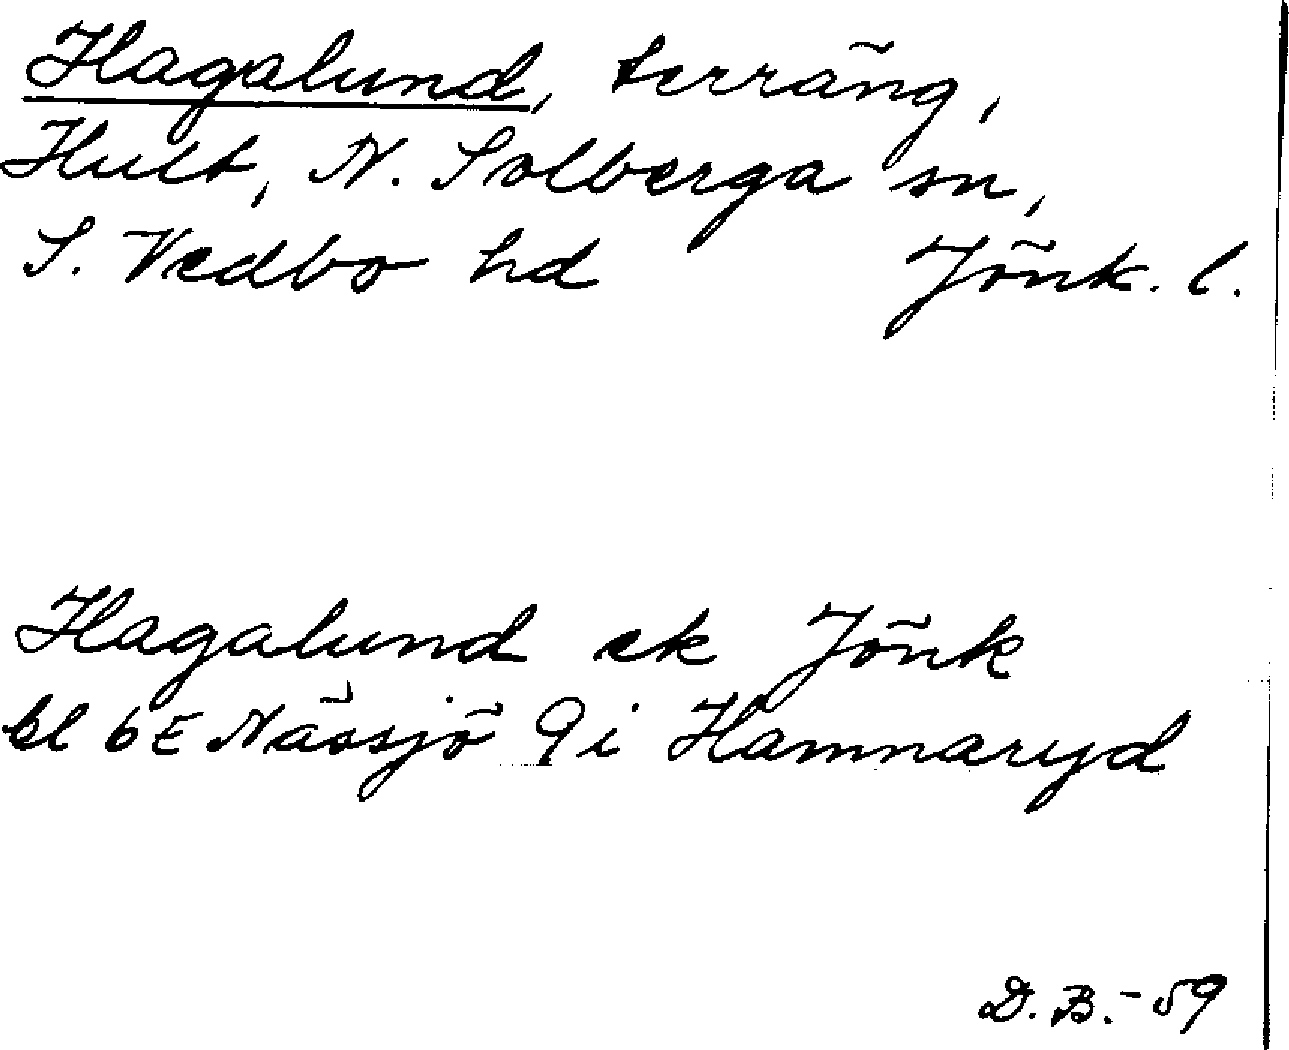 Hagalund, terräng,
Hult, N. Solberga sn,
S. Vedbo hd Jönk. l.
Hagalund ek Jönk
bl 6E Nässjö 9i Hamnaryd
D. B. - 59